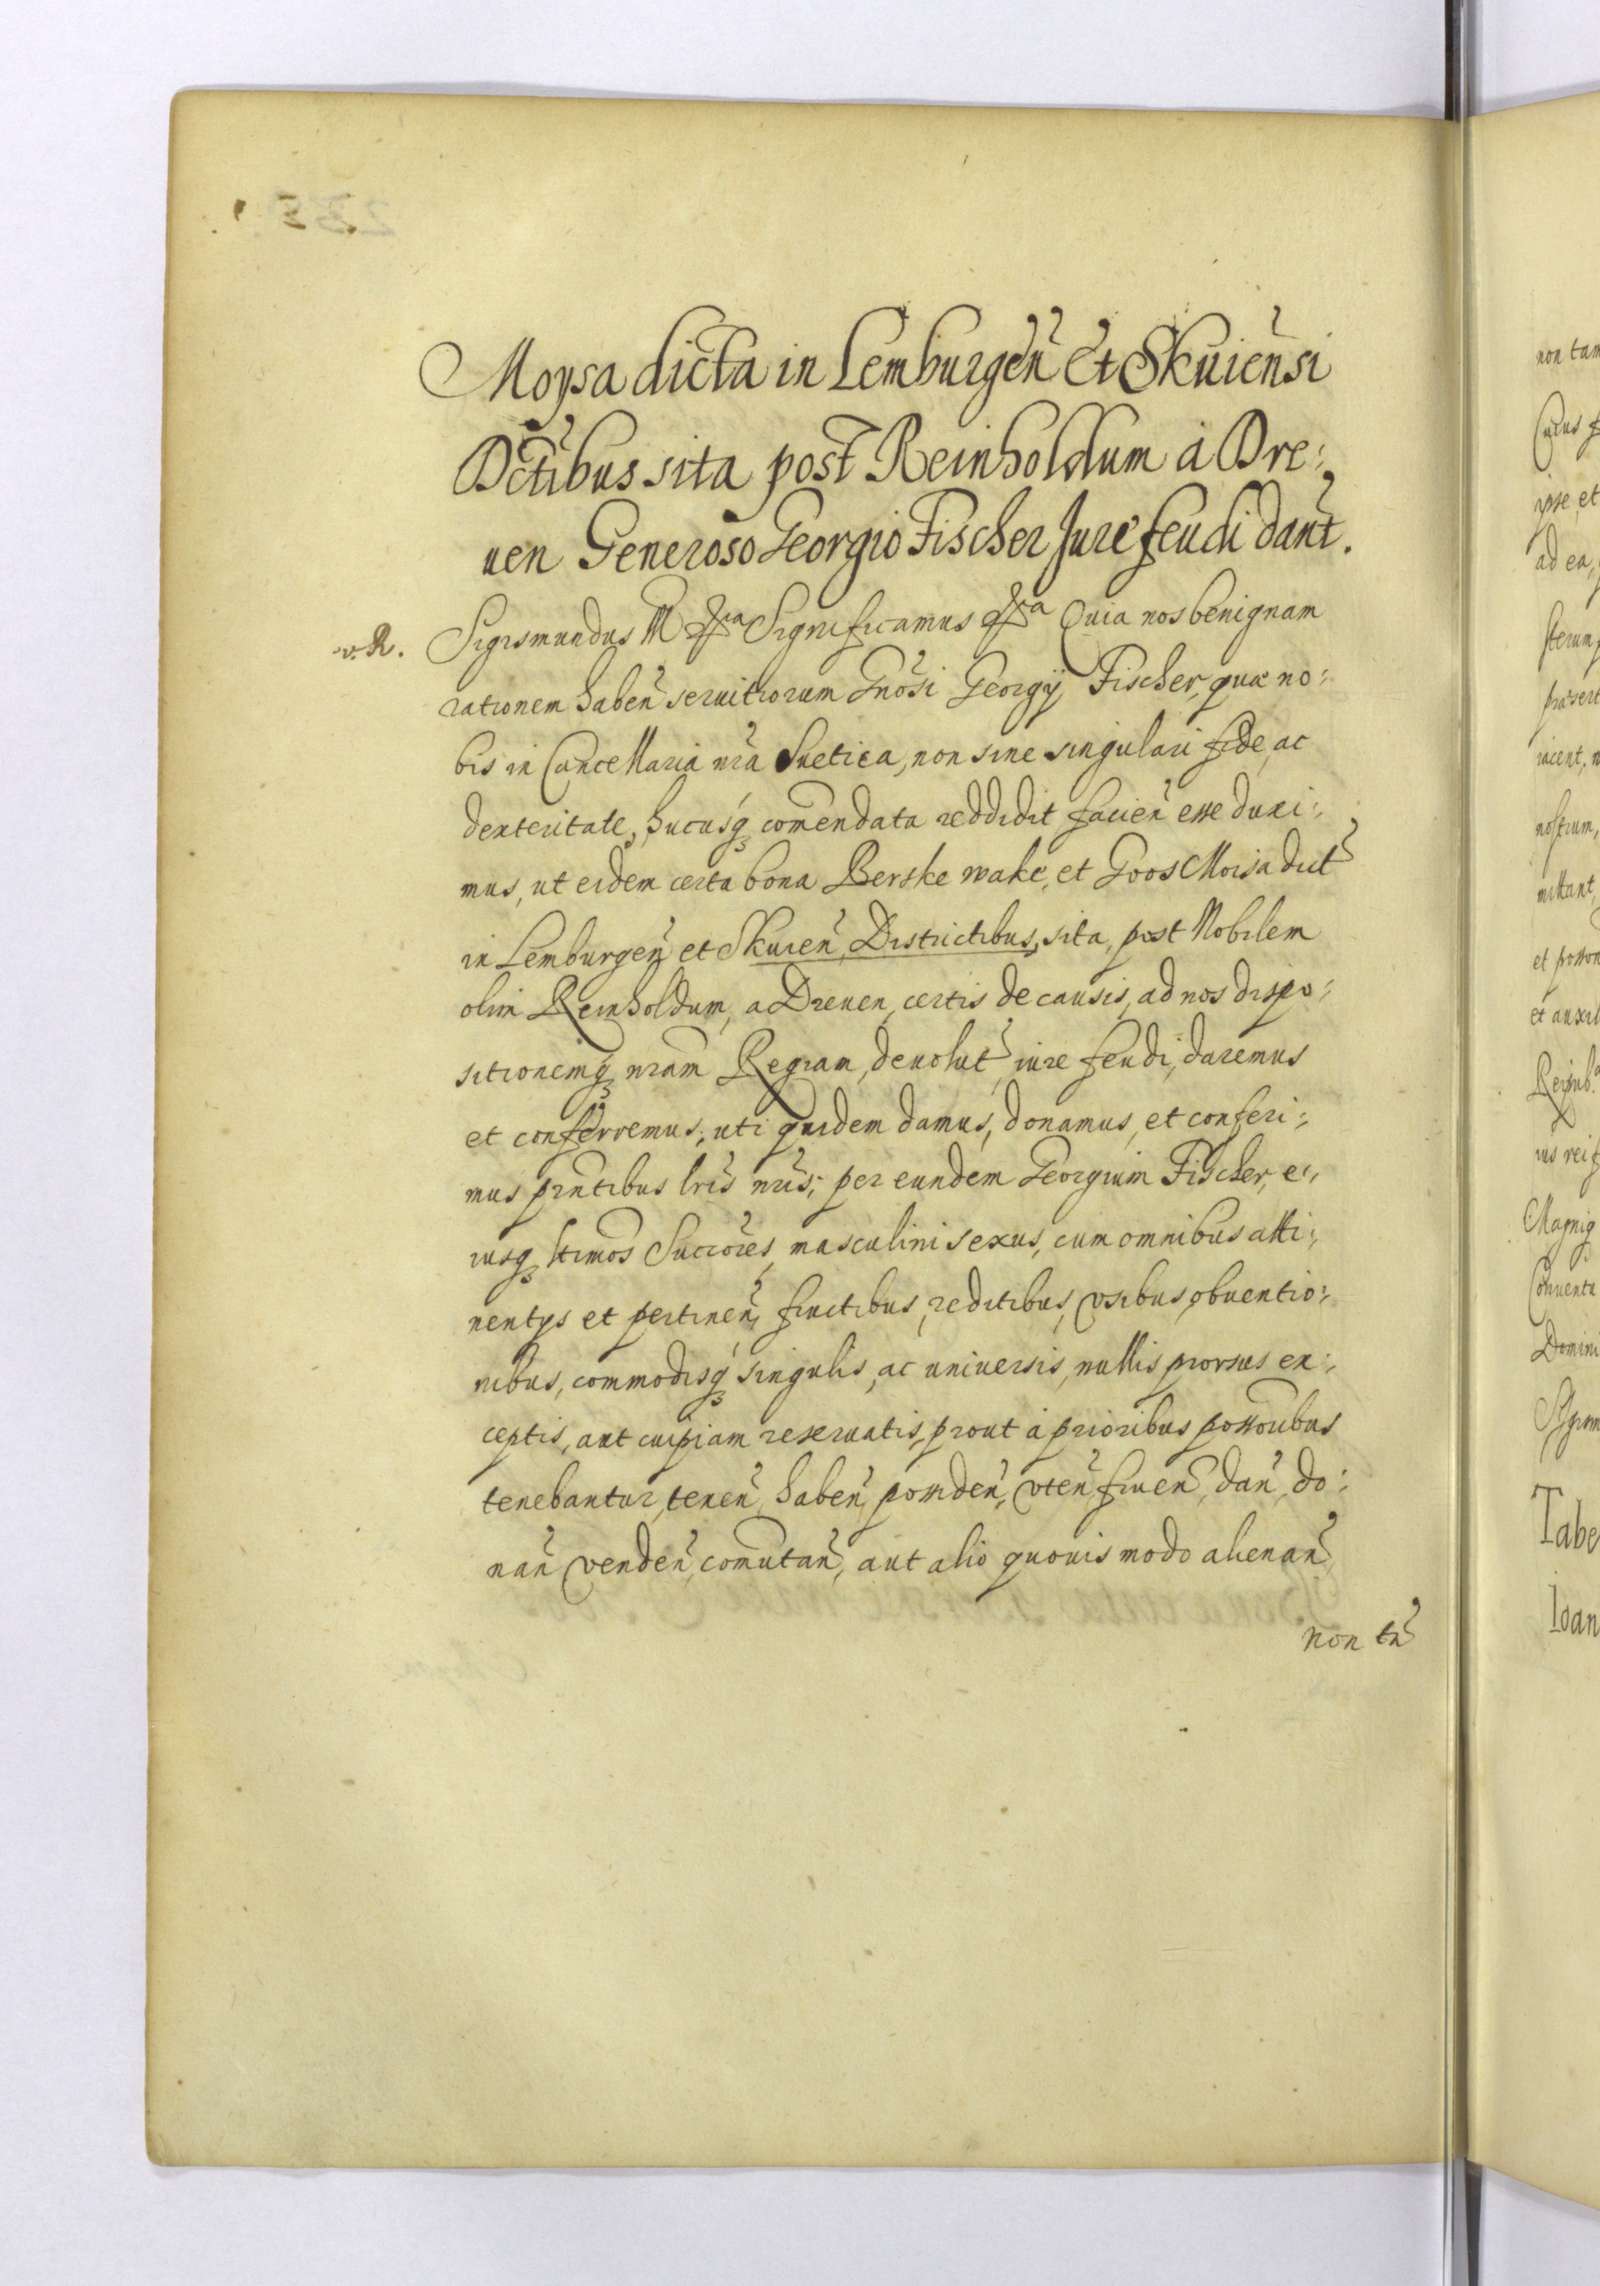 Moysa dicta in Lemburgen̄ Et Skuien̄si
Dctibus sita post Reinholdum à Dre:,
uen Generoso Georgio Fischer Jure feudi dant̄.
v. R. Sigismundus III Significamus Quia nos benignam
rationem haben̄ seruitiorum Gnosi Georgij Fischer, quæ no:,
bis in Cancellaria nr̄a Suetica, non sine singulari fide, ac
dexteritate, hucusq̨ comendata reddidit facien̄ esse duxi:,
mus, ut eidem certa bona Berske wake, et Goos Moisa dict̄
in Lemburgen̄ et Skuien̄, Districtibus, sita, post Nobilem
olim Reinholdum, a Dreuen, certis de causis, ad nos dispo:,
sitionemq̨ nr̄am Regiam, deuolut̄, iure feudi, daremus
et conferremus, uti quidem damus, donamus, et conferi:,
mus prn̄tibus lr̄is nr̄is; per eundem Georgium Fischer, e:,
iusq̨ ltimos Succores, masculini sexus, cum omnibus atti:,
nentys et pertinen̄, fructibus, reditibus, vsibus, obuentio:,
nibus, commodisq̨ singulis, ac uniuersis, nullis prorsus ex:,
ceptis, aut cuipiam reseruatis, prout à prioribus possoribus
tenebantur, tenen̄, haben̄, possiden̄, vten̄, fruen̄, dan̄, do:,
nan̄ venden̄, comutan̄, aut alio quouis modo alienan̄,
non tn̄
non tam
ipse, et
ad ea,
iacent,
nostrum,
mittant,
et posson
et auxil
Reipub.
ius rei
Magnig
Conuentu
Domini
Sigism
Tabe
Ioan